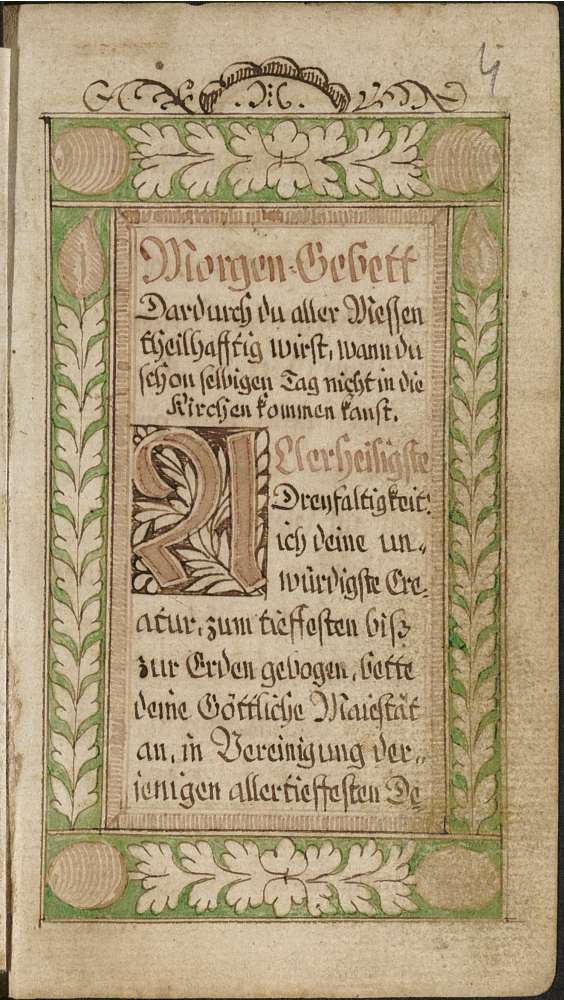 4
Morgen-Gebett
Dardurch du aller Messen
theilhafftig wirst, wann du
schon selbigen Tag nicht in die
Kirchen kommen kanst.
Allerheiligste
Dreyfaltigkeit!
ich deine un-
würdigste Cre-
atur, zum tieffesten biß
zur Erden gebogen, bette
deine Göttliche Maiestät
an, in Vereinigung der-
jenigen allertieffesten De-